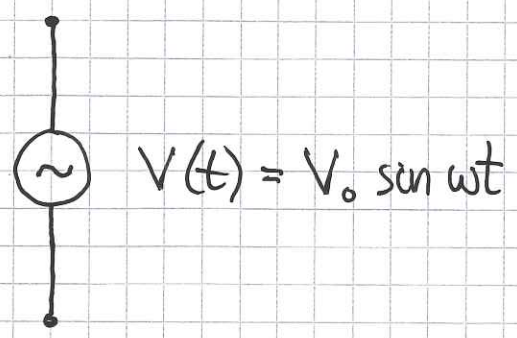 ~ V(t) = V₀ sin ωt